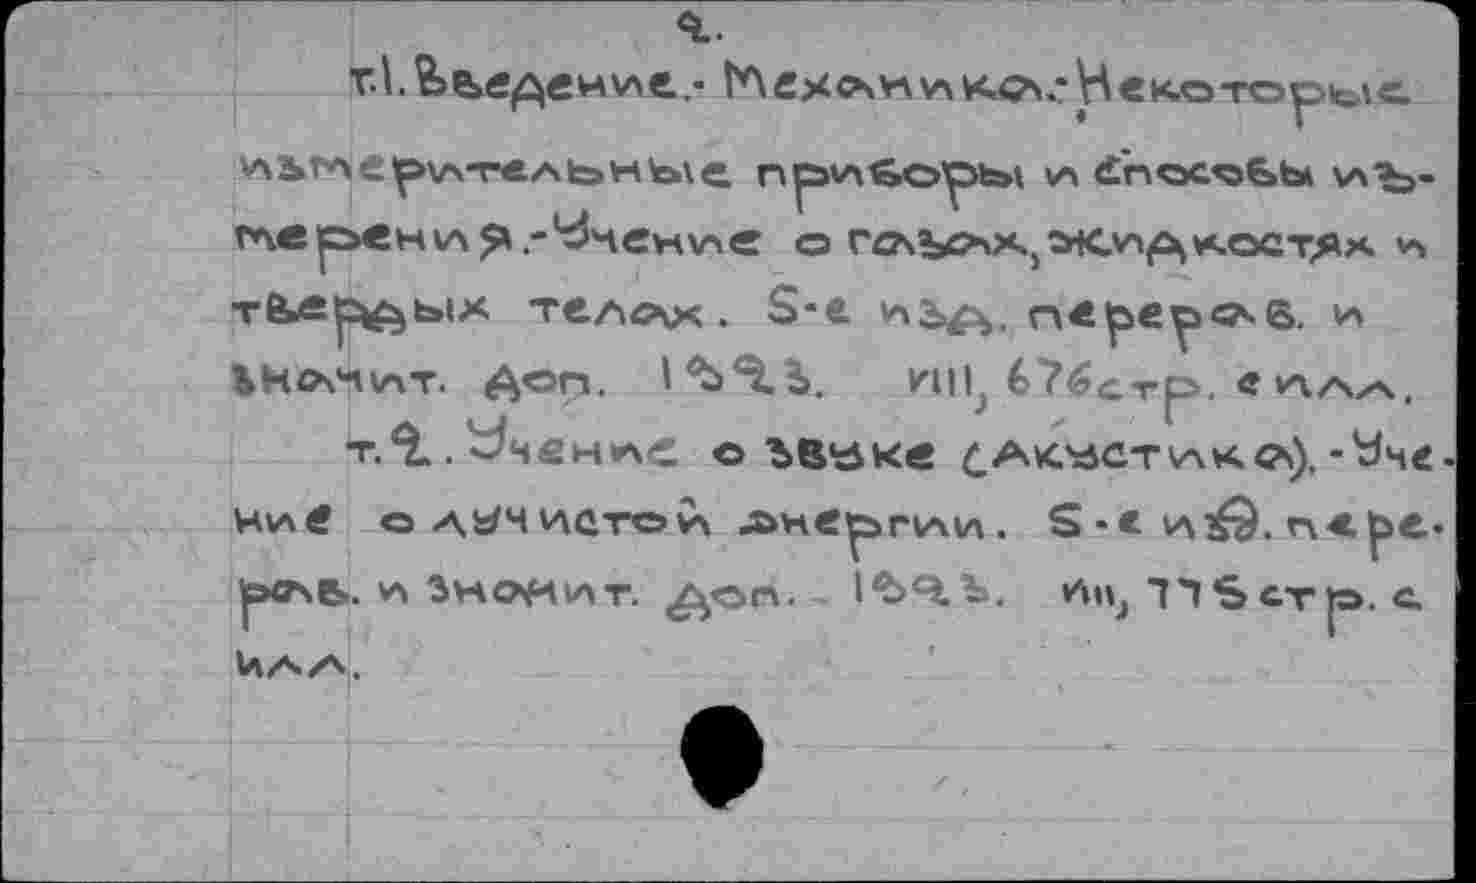 2.
т.1. Введение.- Механика.- Некоторые
измерительные приборы и способы из-
мерения.- Учение о газах, жидкостях и
твердых телах. 5-е изд. перераб. и
значит. доп. 1923. VIII, 676 стр. с илл.
т.2. Учение о звуке (Акустика).- Уче-
ние о лучистой энергии. 5-е изд. пере-
раб. и значит. доп. 1923. 775 стр. с
илл.